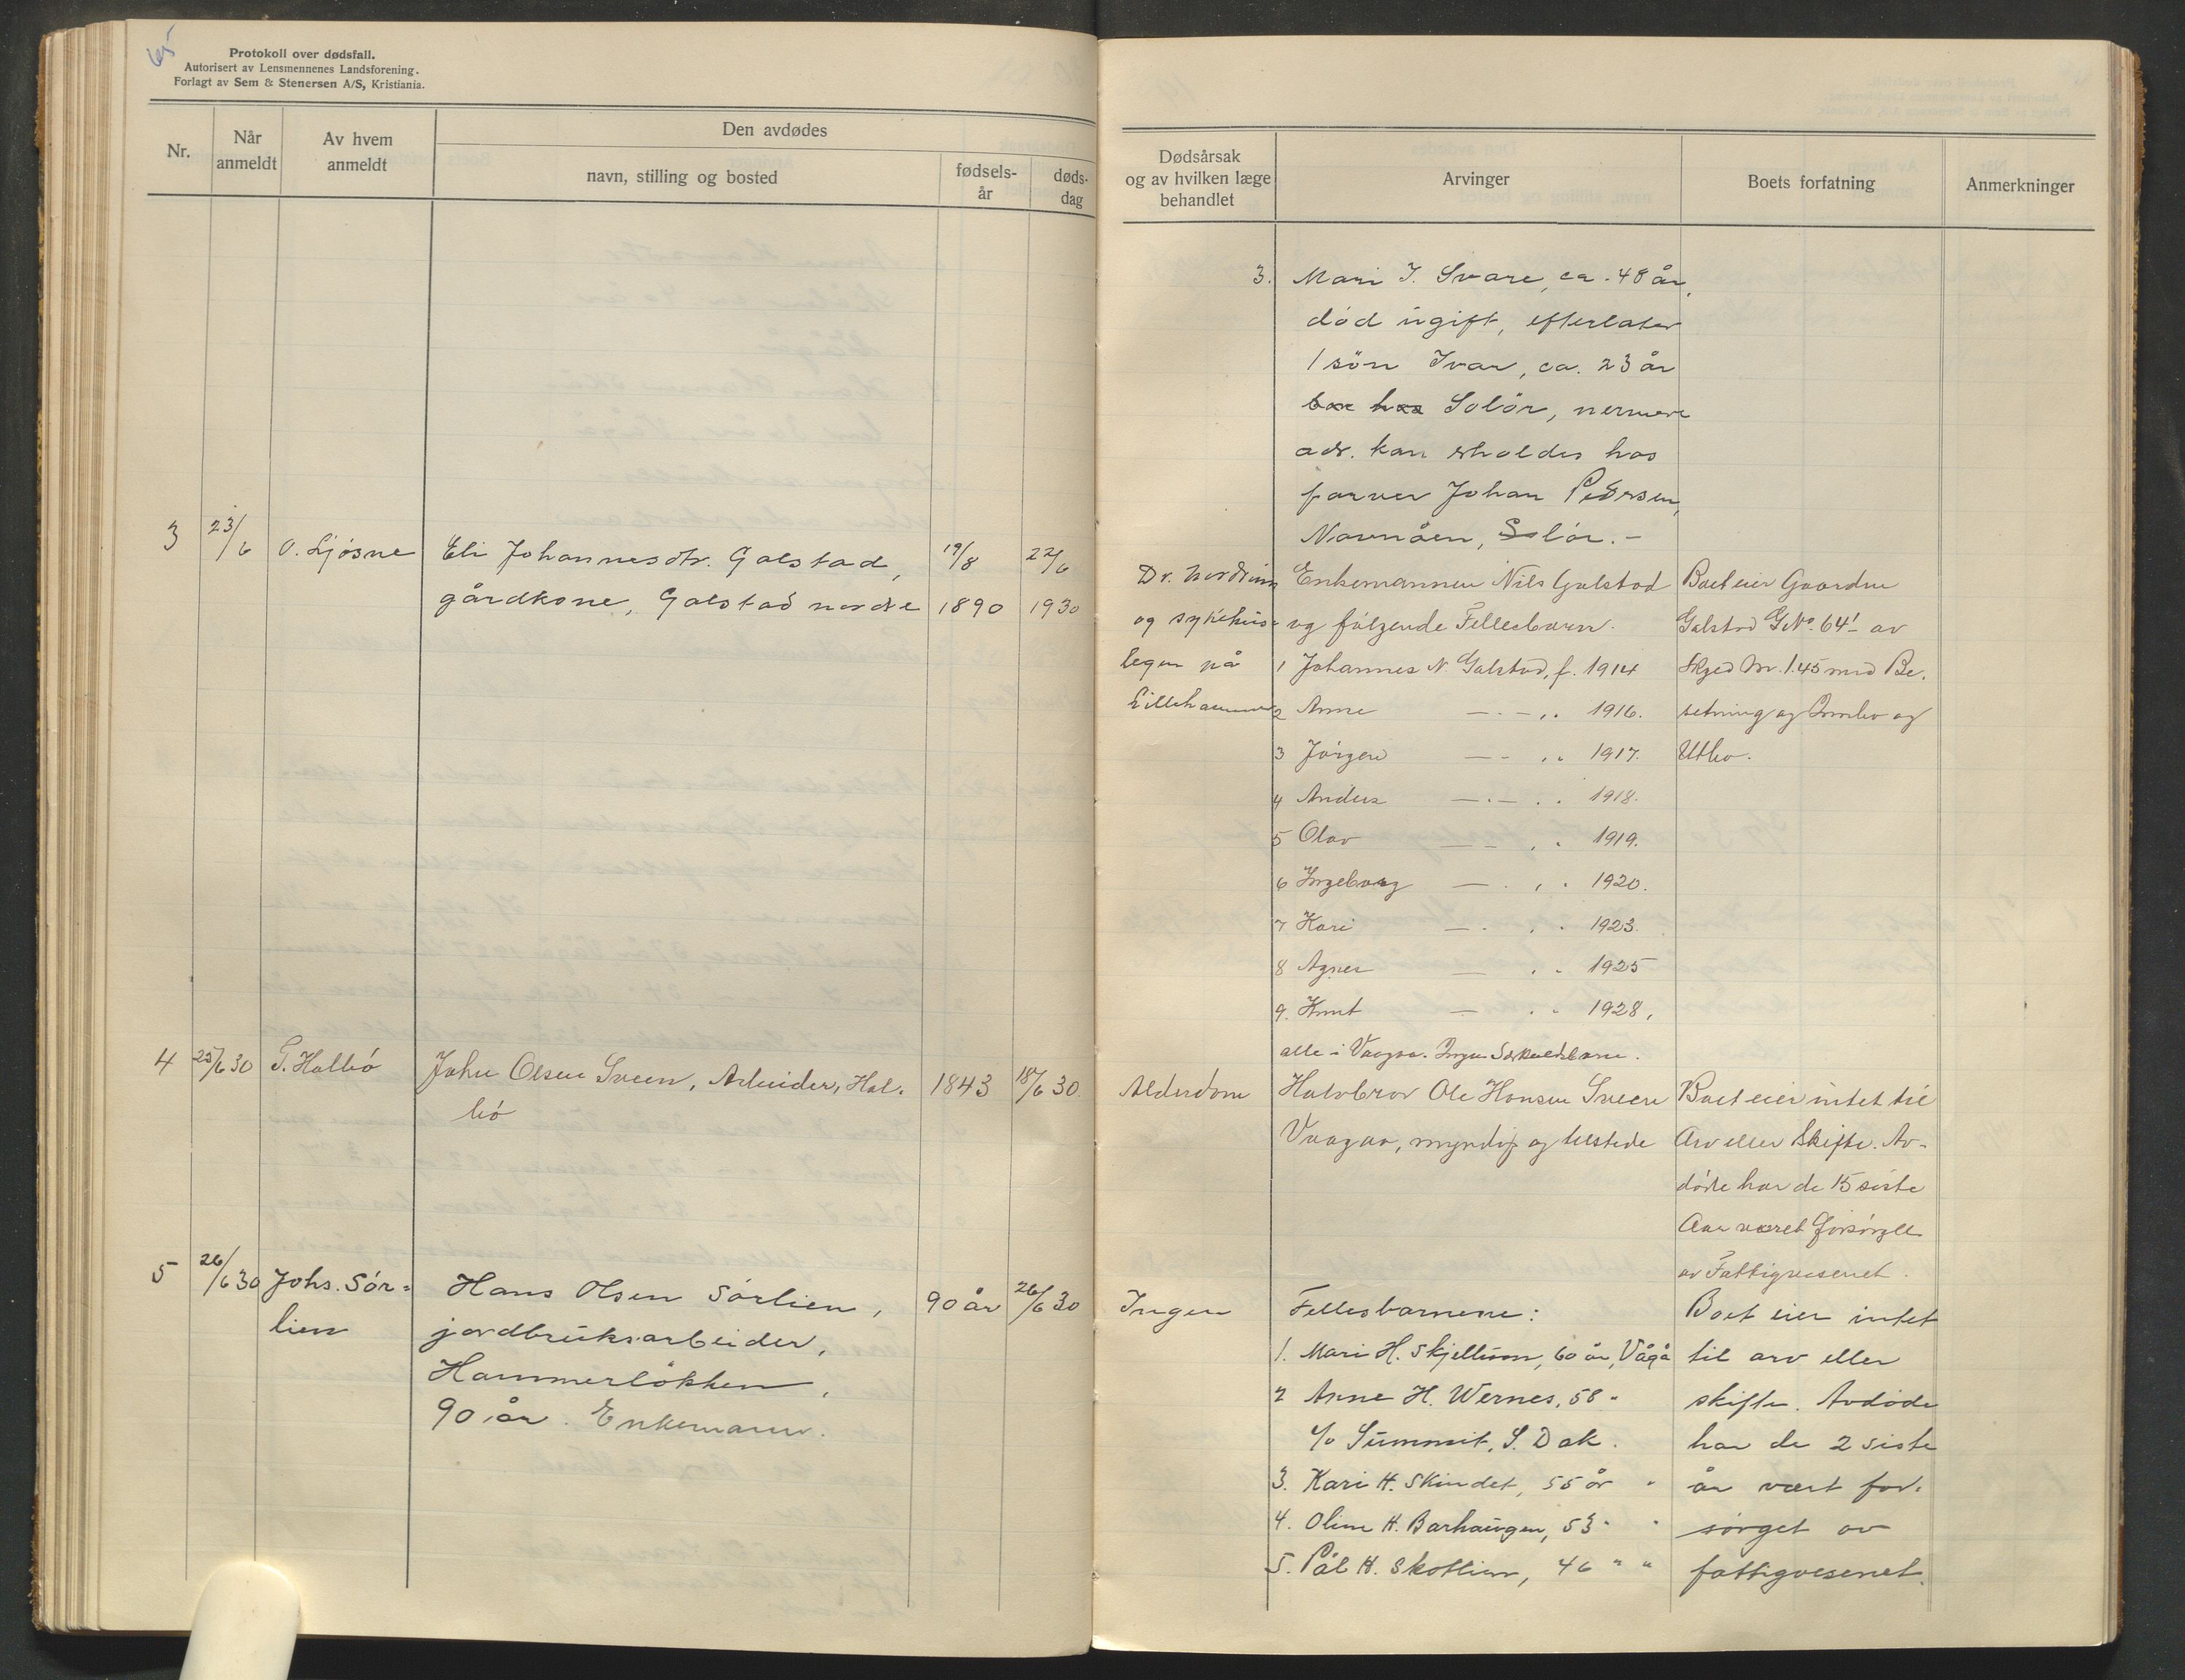 65
Protokoll over dødsfall.
Autorisert av Lensmennenes Landsforening.
Forlagt av Sem & Stenersen A/S, Kristiania.
Nr.
Når anmeldt
Av hvem anmeldt
Den avdødes
navn, stilling og bosted
fødsels-
år
døds-
dag
Dødsårsak
og av hvilken læge
behandlet
Arvinger
Boets forfatning
Anmerkninger
3. Mari I. Svare, ca. 48 år,
död ugift, efterlater
1 sön Ivar, ca. 23 år
bor hos Solör, nermere
adr. kan erholdes hos
farver Johan Pedersen,
Navnåen, Solör. -
3 23/6 O. Ljösne Eli Johannesdtr. Galstad, 19/8 22/6
gårdkone, Galstad nordre 1890 1930
Dr.
og sykehus-
legen på
Lillehammer
Enkemannen Nils Galstad
og følgende Fellesbarn.
1 Johannes N. Galstad, f. 1914
2 Anne —"— " 1916.
3 Jörgen —"— " 1917.
4 Anders —"— " 1918.
5 Olav —"— " 1919.
6 Ingeborg —"— " 1920.
7 Kari —"— " 1923.
8 Agnes —"— " 1925
9. Knut —"— " 1928,
alle i Vaagaa. Ingen Særkuldsbarn.
Boet eier Gaarden
Galstad GNo. 64¹ av
Skyld Mr. 1.45 med Be-
setning og Innbo og
Utbo.
4 25/6 30 T. Halbö John Olsen Sveen, Arbeider, Hal- 1843 18/6 30.
bö
Alderdom
Halvbror Ole Hansen Sveen
Vaagaa, myndig og tilstede
Boet eier intet til
Arv eller Skifte. Av-
døde har de 15 siste
Aar været forsörget
av Fattigvesenet.
5 26/6 30 Johs. Sör- Hans Olsen Sörlien, 90 år 26/6 30
lien jordbruksarbeider,
Hammerlökken,
90 år. Enkemann.
Ingen
Fellesbarnene:
1. Mari H. Skjellum, 60 år, Vågå
2 Anne H. Wernes, 58 "
c/o Summit, S. Dak.
3. Kari H. Skindet, 55 år "
4. Oline H. Barhaugen, 53 " "
5. Pål H. Skotlien, 46 " "
Boet eier intet
til arv eller
skifte. Avdöde
har de 2 siste
år vært for-
sörget av
fattigvesenet.